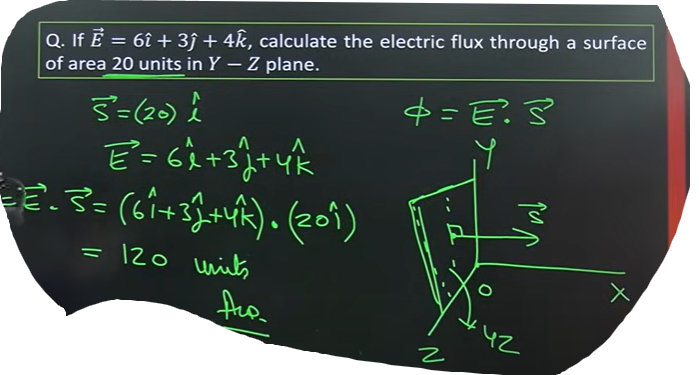 Q. If E⃗ = 6î + 3ĵ + 4k̂, calculate the electric flux through a surface
of area 20 units in Y – Z plane.
S⃗ = (20) î
ϕ = E⃗ . S⃗
E⃗ = 6î + 3ĵ + 4k̂
= E⃗ . S⃗ = (6î + 3ĵ + 4k̂) . (20î)
= 120 units
Ans.
Y
S⃗
O
X
YZ
Z